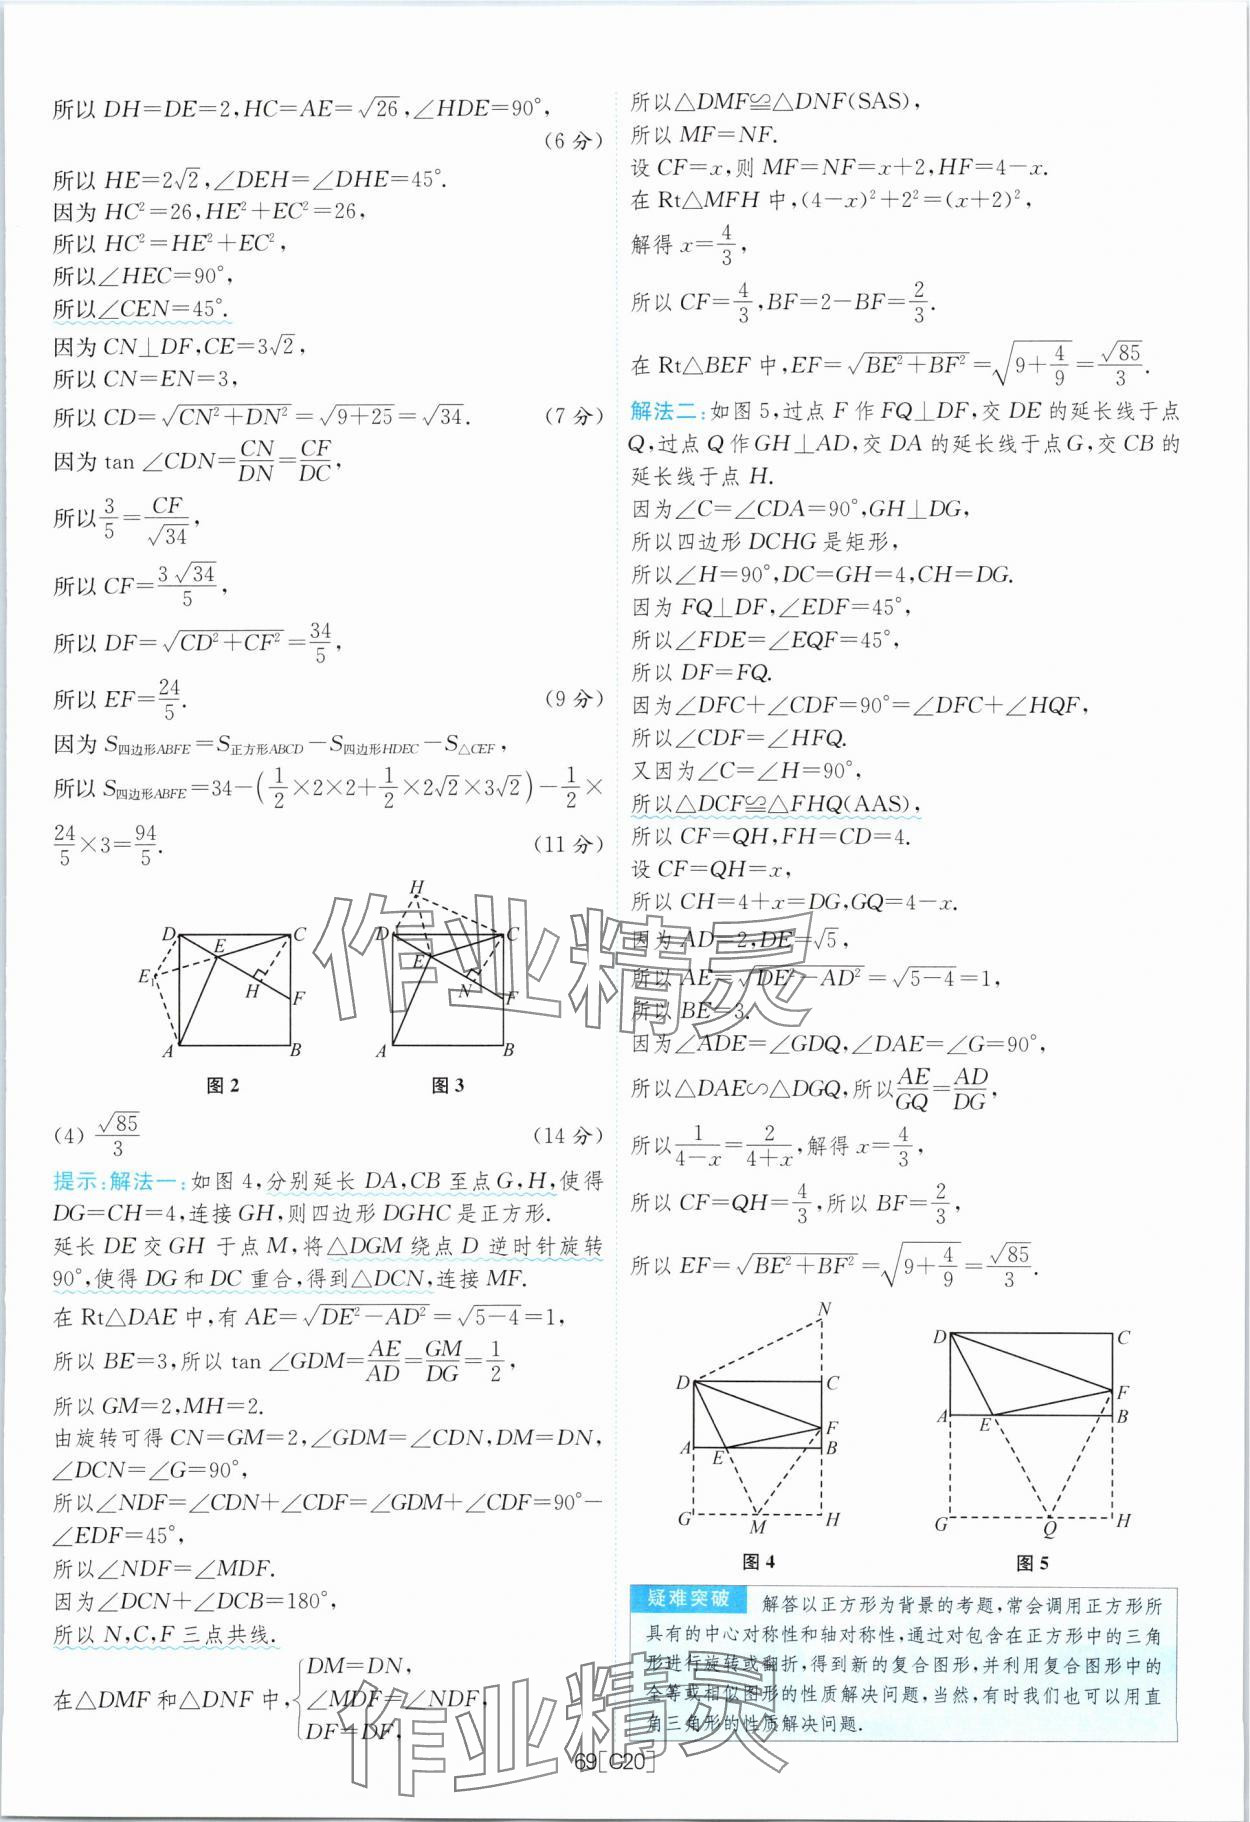 所以 DH=DE=2,HC=AE=√26,∠HDE=90°,
(6分)
所以 HE=2√2,∠DEH=∠DHE=45°.
因为 HC²=26,HE²+EC²=26,
所以 HC²=HE²+EC²,
所以∠HEC=90°,
所以∠CEN=45°.
因为 CN⊥DF,CE=3√2,
所以 CN=EN=3,
所以 CD=√(CN²+DN²)=√(9+25)=√34. (7分)
因为 tan ∠CDN=CN/DN=CF/DC,
所以 3/5=CF/√34,
所以 CF=3√34/5,
所以 DF=√(CD²+CF²)=34/5,
所以 EF=24/5. (9分)
因为 S四边形ABFE=S正方形ABCD-S四边形HDEC-S△CEF,
所以 S四边形ABFE=34-(1/2×2×2+1/2×2√2×3√2)-1/2×
24/5×3=94/5. (11分)
D E C E₁ H F A B
图2
H D C E N F A B
图3
(4) √85/3 (14分)
提示:解法一:如图4,分别延长 DA,CB 至点 G,H,使得
DG=CH=4,连接 GH,则四边形 DGHC 是正方形.
延长 DE 交 GH 于点 M,将△DGM 绕点 D 逆时针旋转
90°,使得 DG 和 DC 重合,得到△DCN,连接 MF.
在 Rt△DAE 中,有 AE=√(DE²-AD²)=√(5-4)=1,
所以 BE=3,所以 tan ∠GDM=AE/AD=GM/DG=1/2,
所以 GM=2,MH=2.
由旋转可得 CN=GM=2,∠GDM=∠CDN,DM=DN,
∠DCN=∠G=90°,
所以∠NDF=∠CDN+∠CDF=∠GDM+∠CDF=90°-
∠EDF=45°,
所以∠NDF=∠MDF.
因为∠DCN+∠DCB=180°,
所以 N,C,F 三点共线.
在△DMF 和△DNF 中,{DM=DN,
∠MDF=∠NDF,
DF=DF,
所以△DMF≌△DNF(SAS),
所以 MF=NF.
设 CF=x,则 MF=NF=x+2,HF=4-x.
在 Rt△MFH 中,(4-x)²+2²=(x+2)²,
解得 x=4/3,
所以 CF=4/3,BF=2-BF=2/3.
在 Rt△BEF 中,EF=√(BE²+BF²)=√(9+4/9)=√85/3.
解法二:如图5,过点 F 作 FQ⊥DF,交 DE 的延长线于点
Q,过点 Q 作 GH⊥AD,交 DA 的延长线于点 G,交 CB 的
延长线于点 H.
因为∠C=∠CDA=90°,GH⊥DG,
所以四边形 DCHG 是矩形,
所以∠H=90°,DC=GH=4,CH=DG.
因为 FQ⊥DF,∠EDF=45°,
所以∠FDE=∠EQF=45°,
所以 DF=FQ.
因为∠DFC+∠CDF=90°=∠DFC+∠HQF,
所以∠CDF=∠HFQ.
又因为∠C=∠H=90°,
所以△DCF≌△FHQ(AAS),
所以 CF=QH,FH=CD=4.
设 CF=QH=x,
所以 CH=4+x=DG,GQ=4-x.
因为 AD=2,DE=√5,
所以 AE=√(DE²-AD²)=√(5-4)=1,
所以 BE=3.
因为∠ADE=∠GDQ,∠DAE=∠G=90°,
所以△DAE∽△DGQ,所以AE/GQ=AD/DG,
所以1/(4-x)=2/(4+x),解得 x=4/3,
所以 CF=QH=4/3,所以 BF=2/3,
所以 EF=√(BE²+BF²)=√(9+4/9)=√85/3.
N D C F A E B G M H
图4
D C F A E B G Q H
图5
疑难突破 解答以正方形为背景的考题,常会调用正方形所
具有的中心对称性和轴对称性,通过对包含在正方形中的三角
形进行旋转或翻折,得到新的复合图形,并利用复合图形中的
全等或相似图形的性质解决问题,当然,有时我们也可以用直
角三角形的性质解决问题.
69[C20]
作业精灵
作业精灵